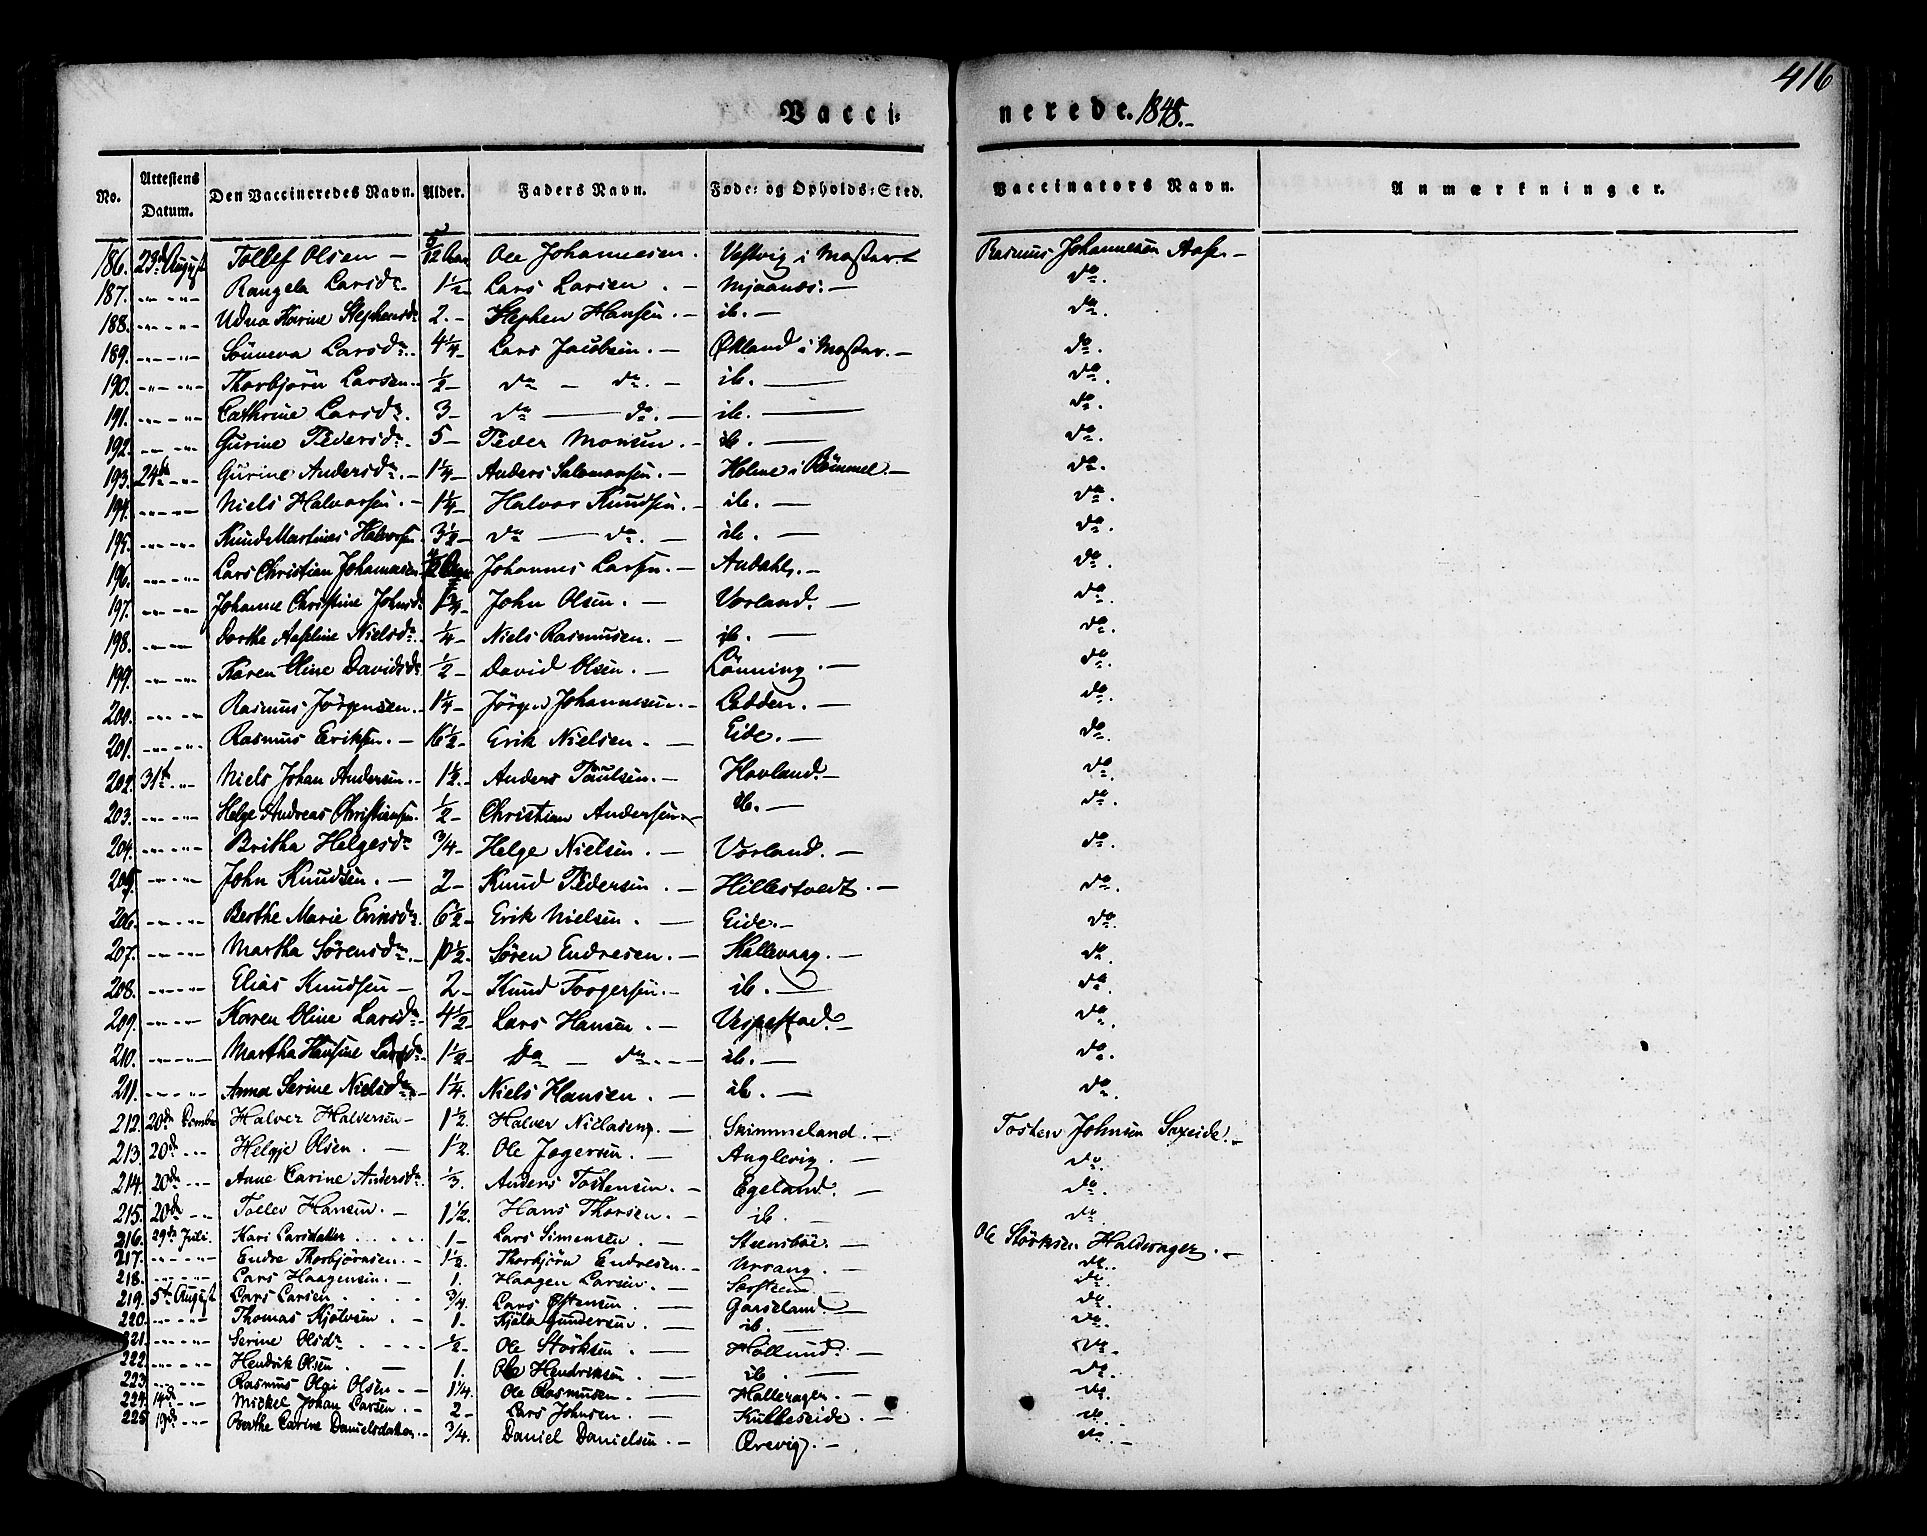 416
Vacci-nerede. 1848.-
No. Attestens Datum. Den Vaccineredes Navn. Alder. Faders Navn. Føde- og Opholds-Sted. Vaccinators Navn. Anmærkninger.
186. 23d August Tollef Olsen - 5/12 Aar Ole Johannesen. Vestvig i Moster.- Rasmus Johannesen -
187. -- -- -- Rangela Larsdr. 1 1/2- Lars Larsen. - Mjaanæs.- do.
188. -- -- -- Udna Karine Stephensdr 2.- Stephen Hansen.- ib.- do.
189. -- -- -- Sünneva Larsdr.. 4 1/4- Lars Jacobsen.- Økland i Moster.- do.
190. -- -- -- Thorbjörn Larsen.. 1/2- do - do.- ib. - do.
191. -- -- -- Cathrine Larsdr. 3- do - do.- ib. - do.
192. -- -- -- Gurine Pedersdr. 5- Peder Monsen.- ib. - do.
193. 24de -- Gurine Andersdr.- 1 1/4- Anders Salomonsen.- Holme i Römmel.- do.
194. -- -- -- Niels Halvorsen.- 1 1/4- Halvor Knudsen.- ib. - do.
195. -- -- -- Knud Martines Halvorsen. 3 1/2- do - do. - ib. - do.
196. -- -- -- Lars Christian Johannesen Johannes Larsen.- Andahl.- do.
197. -- -- -- Johanne Christine Johnsdr 1 3/4- John Olsen. - Vorland. - do.
198. -- -- -- Dorthe Aaseline Nielsdr. 1/4- Niels Rasmusen.- ib. - do.
199. -- -- -- Karen Oline Davidsdr 1/2- David Olsen. - Lönning. - do.
200. -- -- -- Rasmus Jörgensen.- 1 1/4- Jörgen Johannesen.- Lødden.- do.
201. -- -- -- Rasmus Eriksen.- 16 1/2- Erik Nielsen. - Eide.- do.
202. 31te -- Niels Johan Andersen.- 1 1/2.- Anders Paulsen.- Hovland.- do.
203. -- -- -- Helge Andreas Christiansen. 1/2- Christian Andersen.- ib. - do.
204. -- -- -- Britha Helgesdr 3/4- Helge Nielsen. - Vorland. - do.
205. -- -- -- John Knudsen. - 2- Knud Pedersen. - Hillestvedt.- do.
206. -- -- -- Berthe Marie Eriksdr. 6 1/2- Erik Nielsen. - Eide.- do.
207. -- -- -- Martha Sörensdr.- 10 1/2- Sören Endresen.- Kallevaag.- do.
208. -- -- -- Elias Knudsen - 2- Knud Torgersen.- ib. - do.
209. -- -- -- Karen Oline Larsdr 4 1/2- Lars Hansen. - Vespestad.- do.
210. -- -- -- Martha Hansine Larsdr. 1 1/2- do - do.- ib. - do.
211. -- -- -- Anna Serine Nielsdr.- 1 1/4. Niels Hansen. - ib. - do.
212. 20de Halver Halversen- 1 1/2. Halver Niclasen. - Skimmeland.- Tosten Johnsen -
213. 20de -- Helgje Olsen. - 1 1/2 Ole Jogersen. - Anglevig. - do.
214. 20de -- Anne Carine Andersdr. 1/3. Anders Tostensen. - Egeland. - do.
215. 20de -- Tollev Hansen.- 1 1/2. Hans Thorsen. - ib. - do
216. 29de Juli. Kari Larsdatter . . . . 1- Lars Simensen. - Steensböe.- Ole Störksen Haldorager.-
217. -- -- -- Endre Thorbjörnsen. - 1 1/2. Thorbjörn Endresen.- Urrang. - do.
218. -- -- -- Lars Haagensen.- 1. Haagen Larsen. - do.
219. 5te August Lars Larsen . . . . 3/4. Lars Östensen. - Gaaseland.- do.
220. -- -- -- Thomas Kjølvsen . - 1- Kjöla Gundersen. - ib. - do.
221. -- -- -- Serine Olsdr . . . . 1/2- Ole Störksen. - Hollund. - do.
222. -- -- -- Hendrik Olsen. - 1. Ole Hendriksen - ib. - do.
223. -- -- -- Rasmus Olgi Olsen. - 1 1/4. Ole Rasmusen. - Halleragen. - do.
224. 14de -- Mickel Johan Larsen. - 2- Lars Johnsen. - Kulleseide. - do.
225. 19de -- Berthe Carine Danielsdatter.- 3/4. Daniel Danielsen.- Ørevig.- do.-